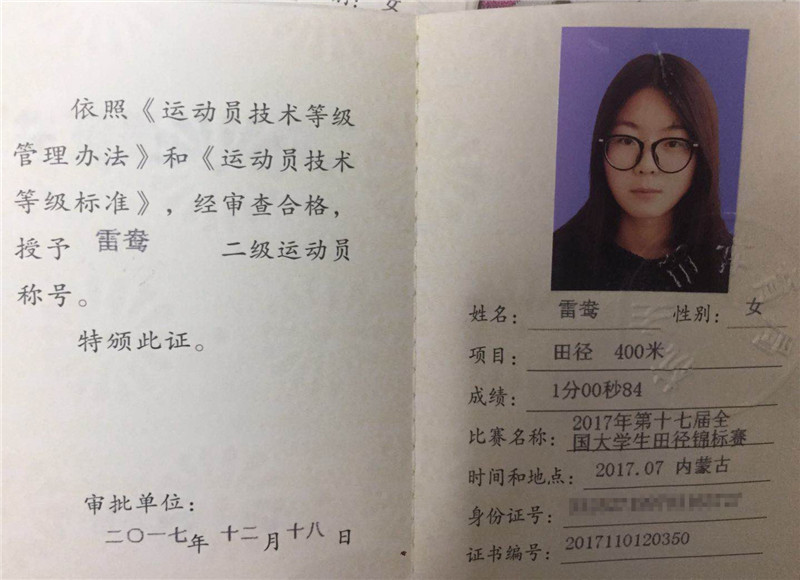 依照《运动员技术等级
管理办法》和《运动员技术
等级标准》，经审查合格，
授予 雷鸯 二级运动员
称号。
特颁此证。
审批单位：
二〇一七年 十二月十八日
姓名： 雷鸯 性别： 女
项目： 田径 400米
成绩： 1分00秒84
比赛名称： 2017年第十七届全
国大学生田径锦标赛
时间和地点： 2017.07 内蒙古
身份证号：
证书编号： 2017110120350